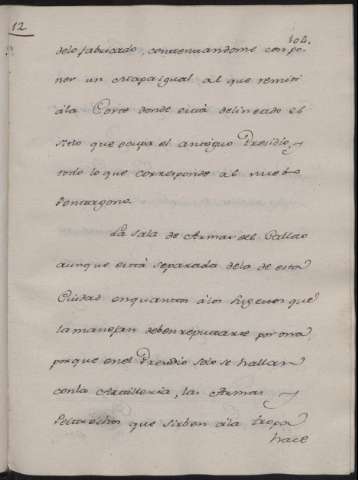 12
102.
delo fabricado, contentandome con po-
ner un mapa igual al que remiti
ála Corte donde está delineado el
sitio que ocupa el antiguo Presidio, y
todo lo que corresponde al nuebo
Pentagono.
La Sala de Armas del Callao
aunque está separada dela de esta
Ciudad en quanto á los Sugetos que
la manejan deben reputarse por una,
porque en el Presidio solo se hallan
conla Artilleria, las Armas y
Peltrechos que sirben ála tropa
hace